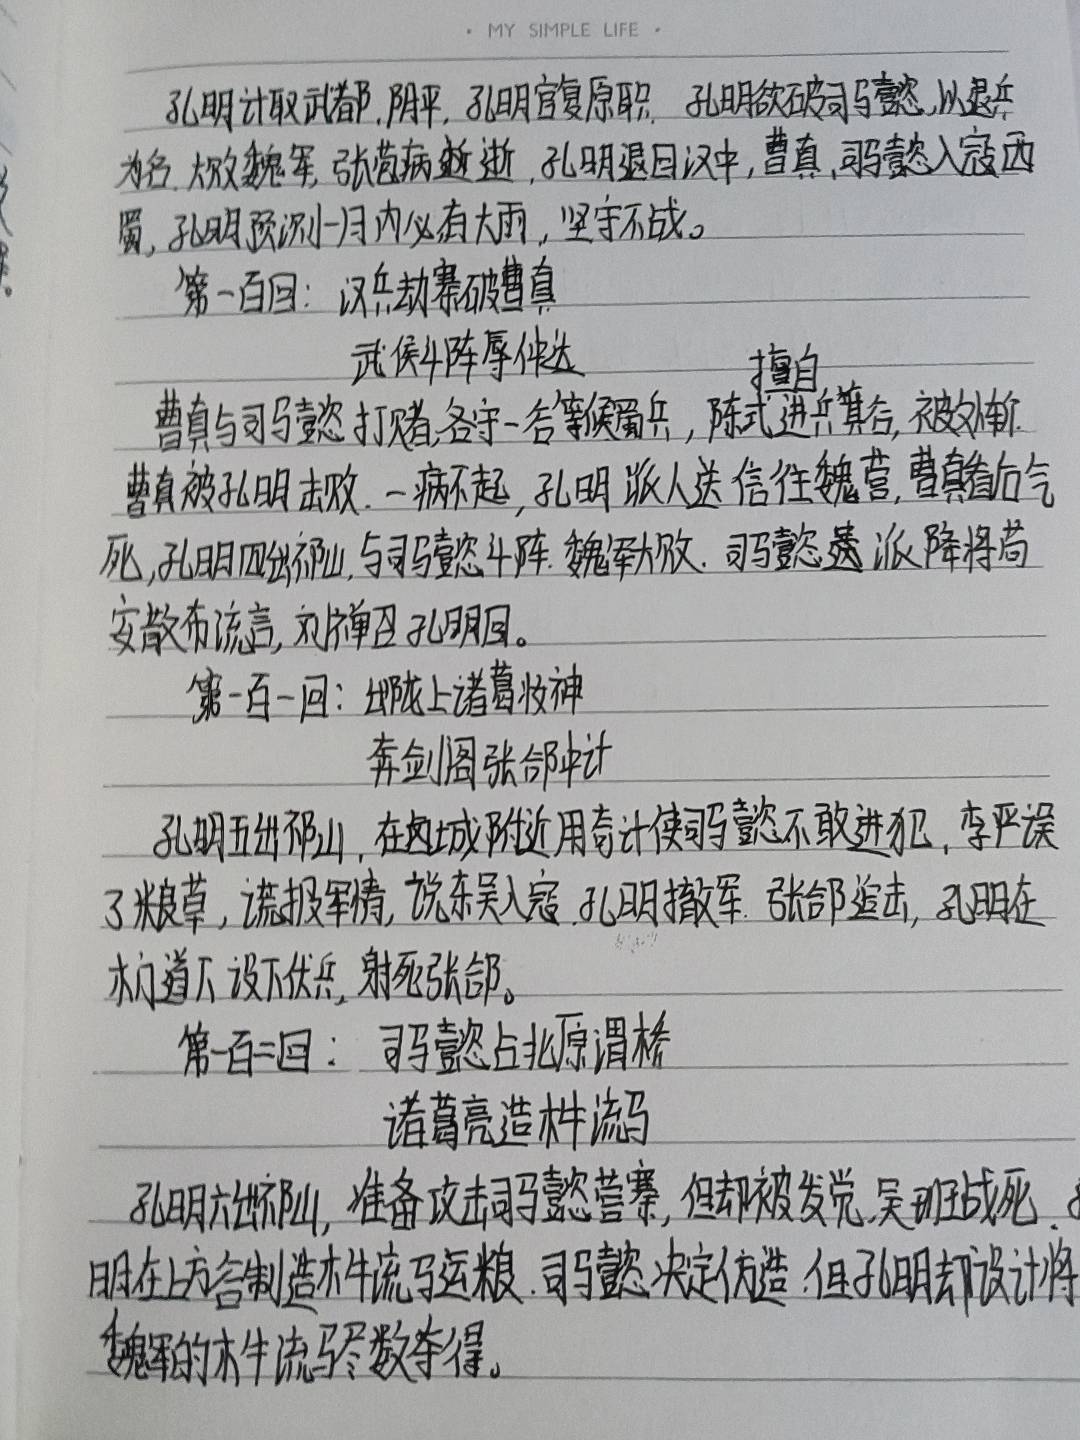 · MY SIMPLE LIFE ·
孔明计取武都、阴平，孔明官复原职，孔明欲破司马懿，以退兵
为名，大败魏军，张苞病逝，孔明退回汉中，曹真、司马懿入寇西
蜀，孔明预测一月内必有大雨，坚守不战。
第一百回：汉兵劫寨破曹真
武侯斗阵辱仲达
擅自
曹真与司马懿打赌，各守一谷等候蜀兵，陈式进兵箕谷，被处斩.
曹真被孔明击败.一病不起，孔明派人送信往魏营，曹真看后气
死，孔明四出祁山，与司马懿斗阵.魏军大败.司马懿派降将苟
安散布流言，刘禅召孔明回。
第一百一回：出陇上诸葛妆神
奔剑阁张郃中计
孔明五出祁山，在卤城附近用奇计使司马懿不敢进犯，李严误
了粮草，谎报军情，说东吴入寇.孔明撤军.张郃追击，孔明在
木门道下设下伏兵，射死张郃。
第一百二回：司马懿占北原渭桥
诸葛亮造木牛流马
孔明六出祁山，准备攻击司马懿营寨，但却被发觉，吴班战死.
明在上方谷制造木牛流马运粮.司马懿决定仿造.但孔明却设计将
魏军的木牛流马尽数夺得。